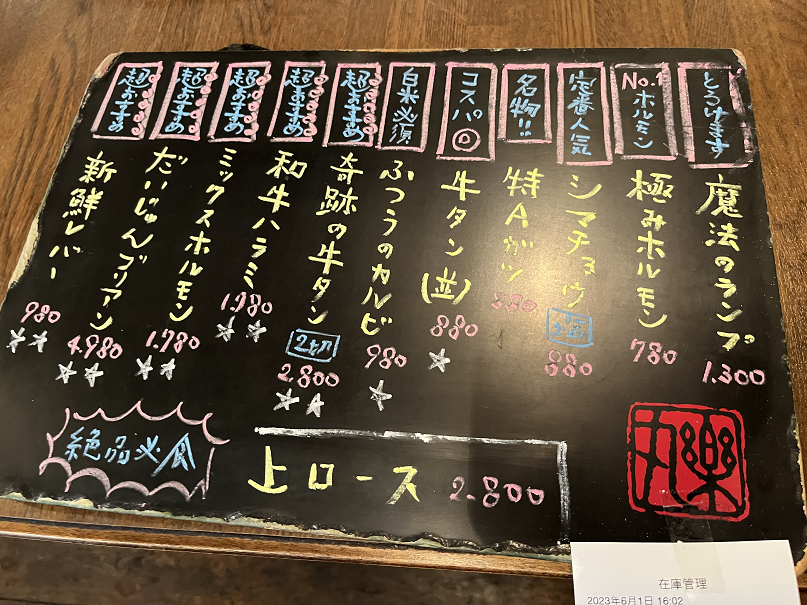 とろけます
魔法のランプ
1.300
No.1
ホルモン
極みホルモン
780
定番人気
シマチョウ
880
名物!!
特Aガツ
880
コスパ◎
牛タン(並)
880
☆
白米必須
ふつうのカルビ
980
☆
超おすすめ
奇跡の牛タン
2切
2.800
☆☆
超おすすめ
和牛ハラミ
1.980
☆☆
超おすすめ
ミックスホルモン
1.780
☆☆
超おすすめ
だいじゅんゴリアン
4.980
☆☆
超おすすめ
新鮮レバー
980
☆☆
絶品必食
上ロース 2.800
在庫管理
2023年6月1日 16:02